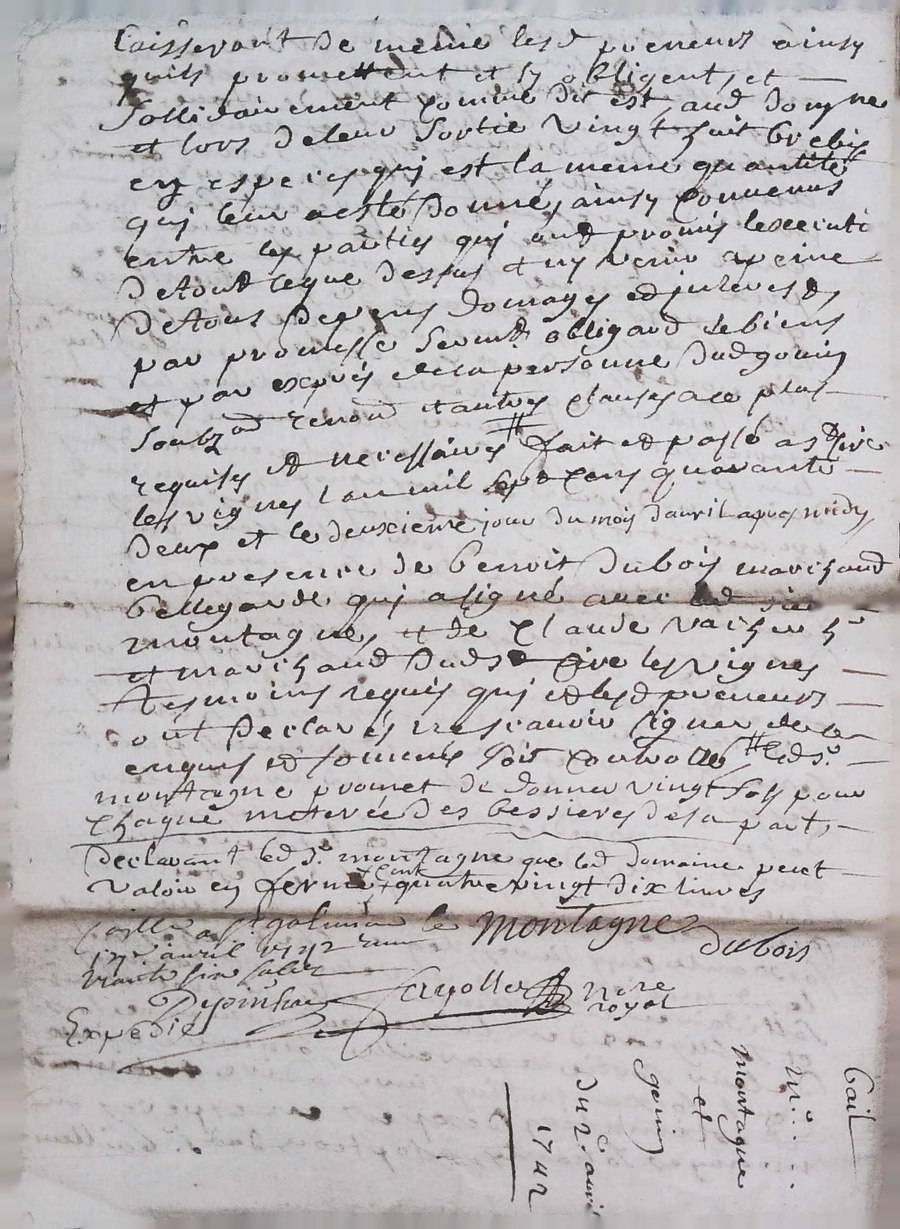 Laisseront de meme lesd preneurs ainsy
quils promettent et sy obligent, et
sollidairement comme dit est, aud domayne
et lors de leur sortie vingt huit brebis
en especes qui est la meme quantité
qui leur a esté donné, ainsy convenus
entre les parties qui ont promis lexecuti
de tout ce que dessus et ny venir a peine
de tous depens domages et interests
par promesse serment obligaond de biens
et par exprés de la personne dud gonin
soubz renond et autres clauses a ce plus
requises et necessaires # fait et passé a st cire
les vignes l an mil sept cens quarante
deux et le deuxieme jour du mois d avril apres midy
en presence de benoit dubois marchand
bellegarde qui a signé avec led sie
montagne, et de claude
et marchand dud st cire les vignes
tesmoins requis qui et lesd preneurs
ont declarés ne scavoir signer de ce
enquis et sommés soit controllé # led sr
montagne promet de donner vingt sols pour
chaque meterée des bessieres de sa part,
declarant led sr montagne que led domaine peut
valoir en ferme cent quatre vingt dix livres
montagne
dubois
a st galmier le
avril 1742
Depinhac
nore
royal
Expedié
bail
mr
montagne
et
gonin
du 2e avril
1742